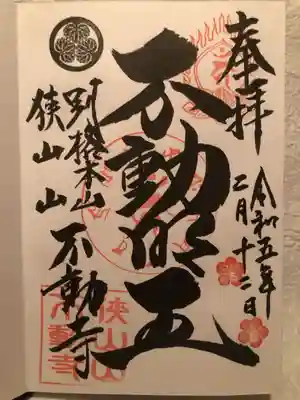 奉拝
令和五年
二月十二日
不動明王
別格本山
狭山山
不動寺
狭山山
不動寺